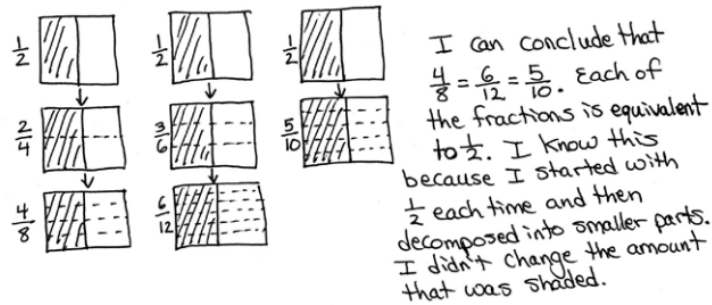 1/2
2/4
4/8
1/2
3/6
6/12
1/2
5/10
I can conclude that
4/8 = 6/12 = 5/10. Each of
the fractions is equivalent
to 1/2. I know this
because I started with
1/2 each time and then
decomposed into smaller parts.
I didn't change the amount
that was shaded.